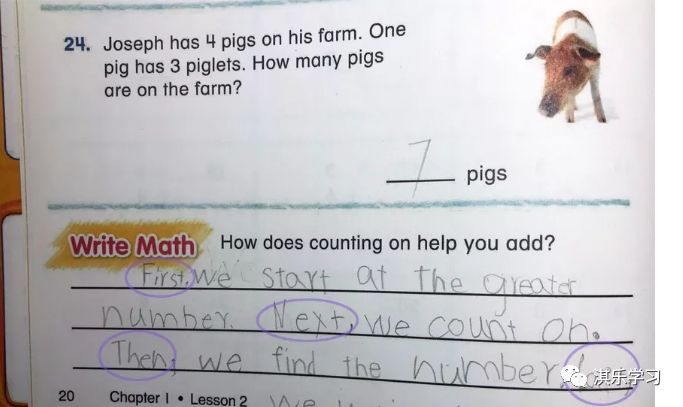 24. Joseph has 4 pigs on his farm. One
pig has 3 piglets. How many pigs
are on the farm?
7 pigs
Write Math How does counting on help you add?
First, we start at the greater
number. Next, we count on.
Then, we find the number.
淇乐学习
20 Chapter 1 • Lesson 2 We